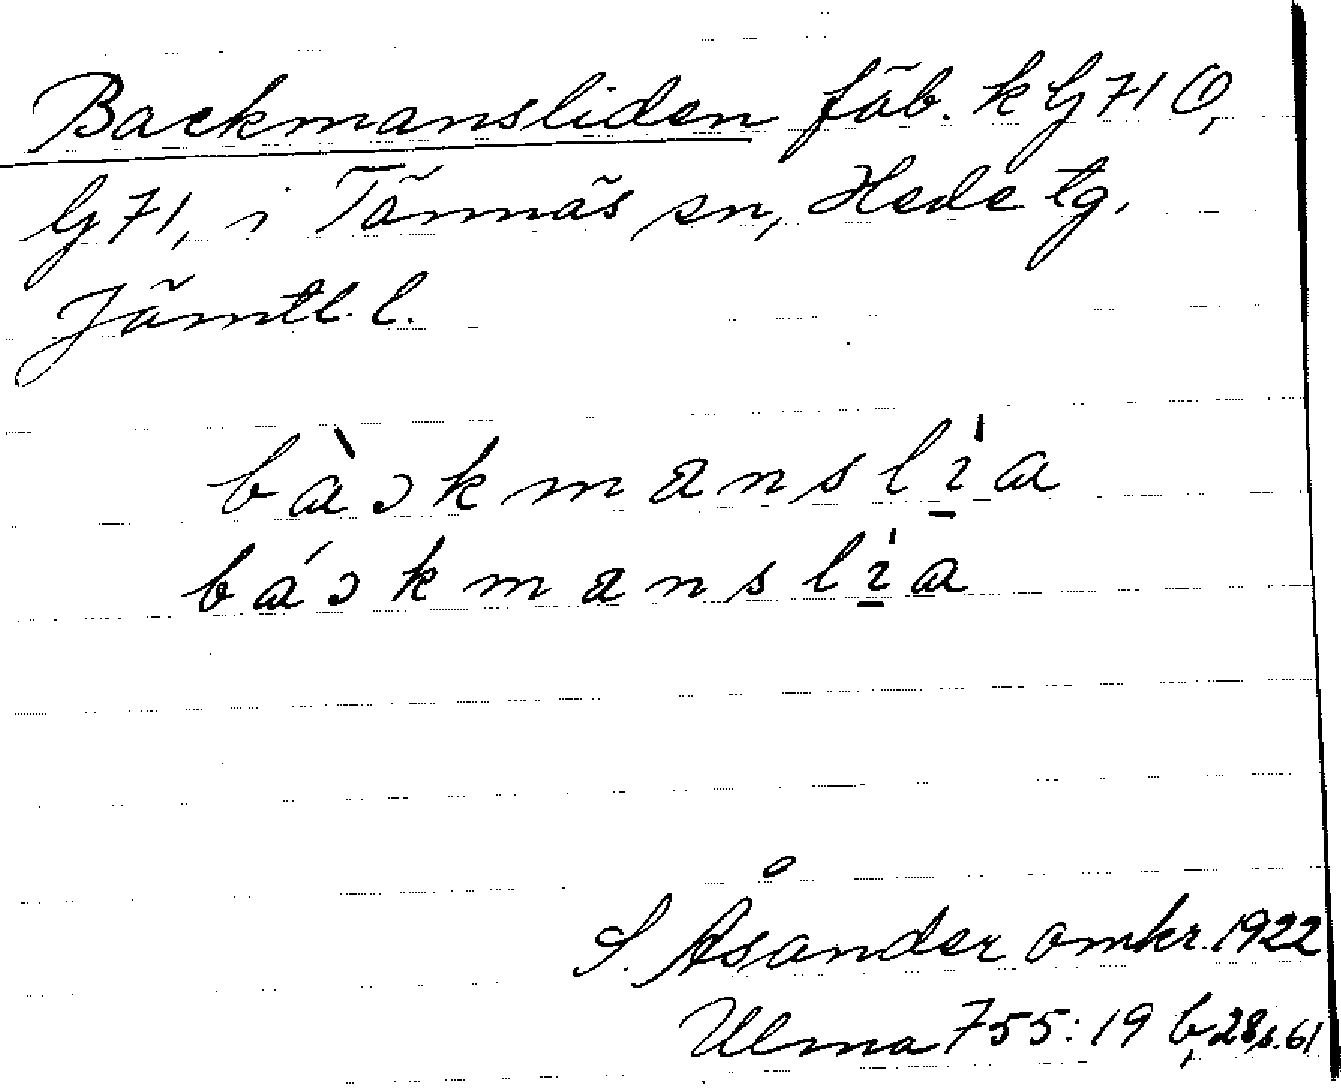 Backmansliden fäb. k G 71 O,
G 71, i Tännäs sn, Hede tg.
Jämtl. l.
bàɔkmansli̱̍a
báɔkmansli̱̍a
S. Åsander omkr. 1922
Ulma 755: 19 b, 28 s. 61